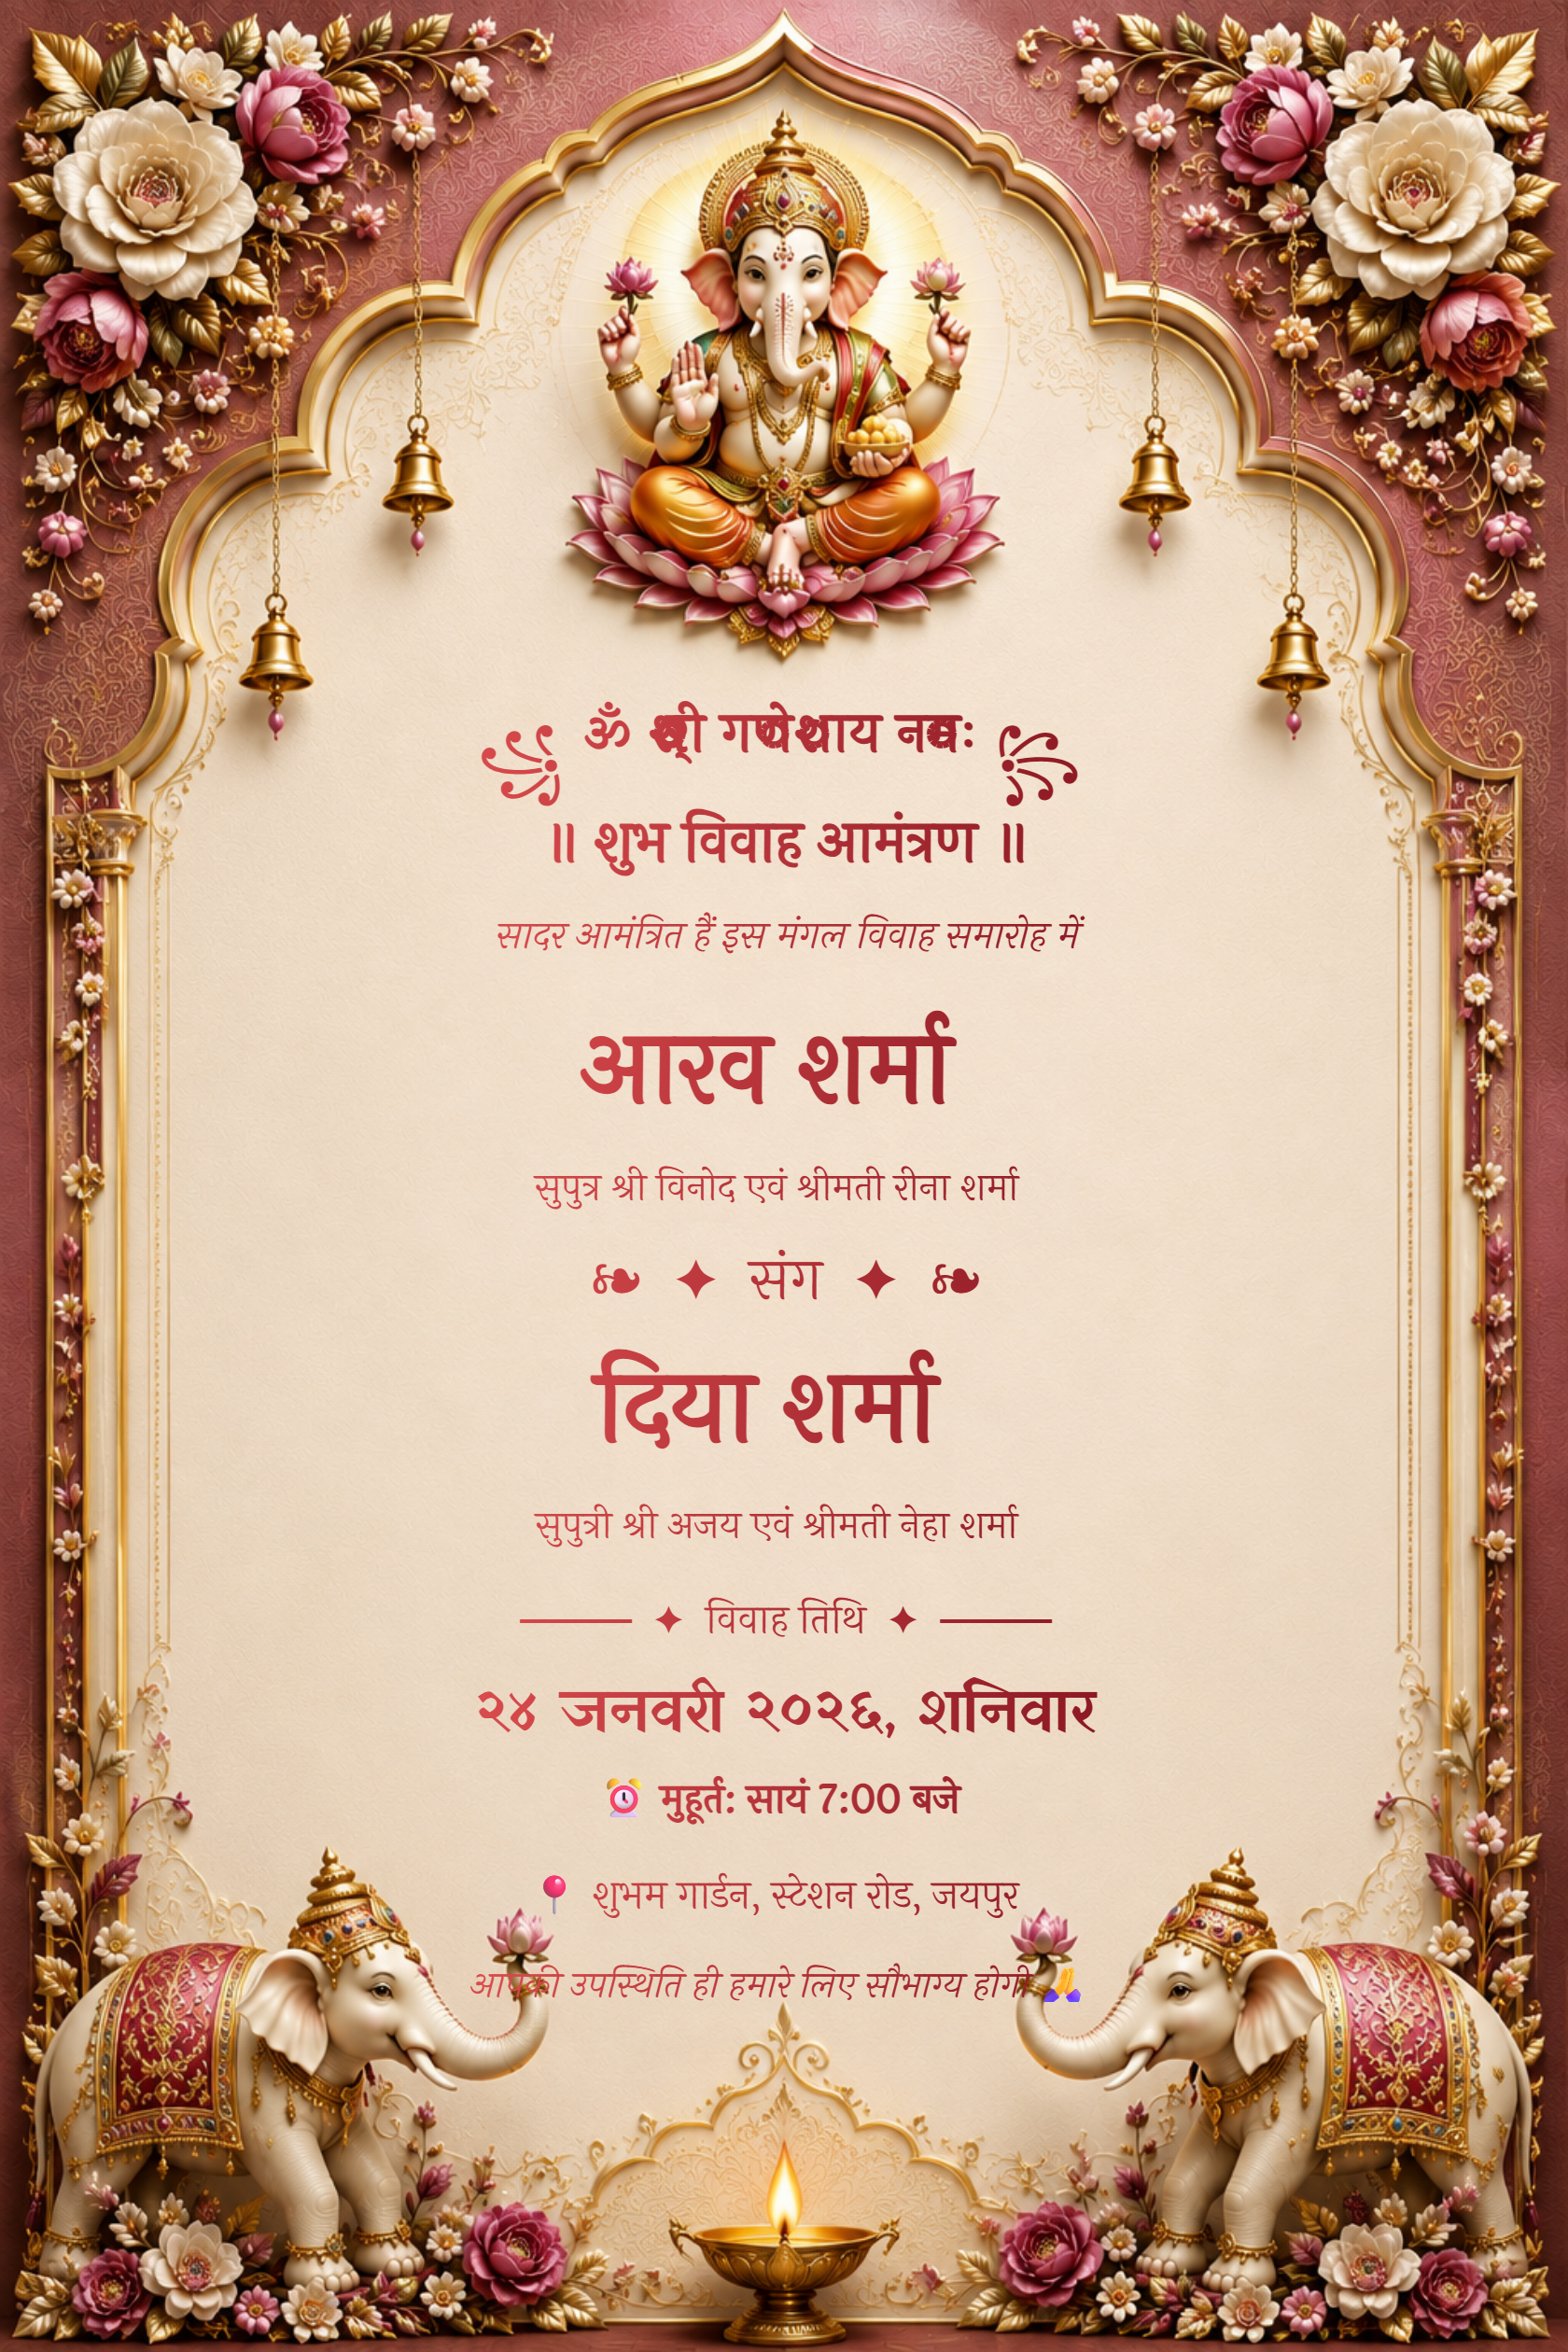 ॐ श्री गणेशाय नमः
॥ शुभ विवाह आमंत्रण ॥
सादर आमंत्रित हैं इस मंगल विवाह समारोह में
आरव शर्मा
सुपुत्र श्री विनोद एवं श्रीमती रीना शर्मा
❧ ✦ संग ✦ ❧
दिया शर्मा
सुपुत्री श्री अजय एवं श्रीमती नेहा शर्मा
—— ✦ विवाह तिथि ✦ ——
२४ जनवरी २०२६, शनिवार
⏰ मुहूर्त: सायं 7:00 बजे
📍 शुभम गार्डन, स्टेशन रोड, जयपुर
आपकी उपस्थिति ही हमारे लिए सौभाग्य होगी 🙏